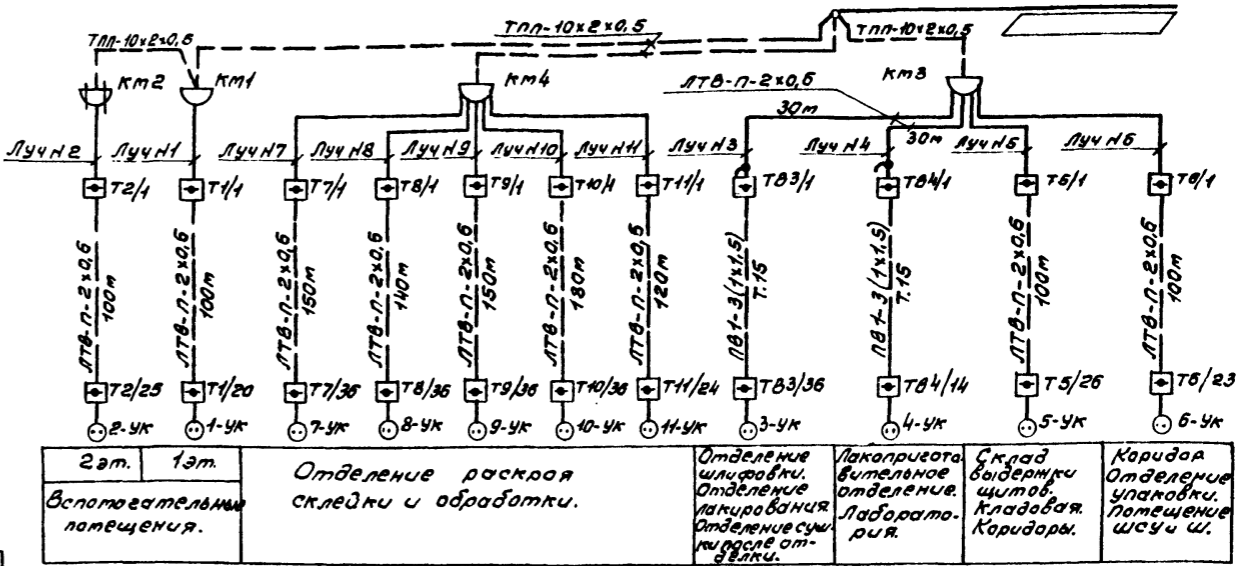 ТПП-10х2х0,5
ТПП-10х2х0,5
ТПП-10х2х0,5
КМ2
КМ1
КМ4
КМ3
ЛТВ-П-2х0,6
30м
30м
Луч №2
Луч №1
Луч №7
Луч №8
Луч №9
Луч №10
Луч №11
Луч №3
Луч №4
Луч №5
Луч №6
Т2/1
Т1/1
Т7/1
Т8/1
Т9/1
Т10/1
Т11/1
ТВ3/1
ТВ4/1
Т5/1
Т6/1
ЛТВ-П-2х0,6
100м
ЛТВ-П-2х0,6
100м
ЛТВ-П-2х0,6
150м
ЛТВ-П-2х0,6
140м
ЛТВ-П-2х0,6
150м
ЛТВ-П-2х0,6
180м
ЛТВ-П-2х0,6
120м
ПВ1-3(1х1,5)
Т.15
ПВ1-3(1х1,5)
Т.15
ЛТВ-П-2х0,6
100м
ЛТВ-П-2х0,6
100м
Т2/25
Т1/20
Т7/36
Т8/36
Т9/36
Т10/36
Т11/24
ТВ3/36
ТВ4/14
Т5/26
Т6/23
2-УК
1-УК
7-УК
8-УК
9-УК
10-УК
11-УК
3-УК
4-УК
5-УК
6-УК
2эт.
1эт.
Вспомогательные
помещения.
Отделение раскроя
склейки и обработки.
Отделение
шлифовки.
Отделение
лакирования
Отделение суш
ки после от-
делки.
Лакопригото
вительное
отделение.
Лаборато-
рия.
Склад
выдержки
щитов.
Кладовая.
Коридоры.
Коридор
Отделение
упаковки.
Помещение
ШСУ и Ш.